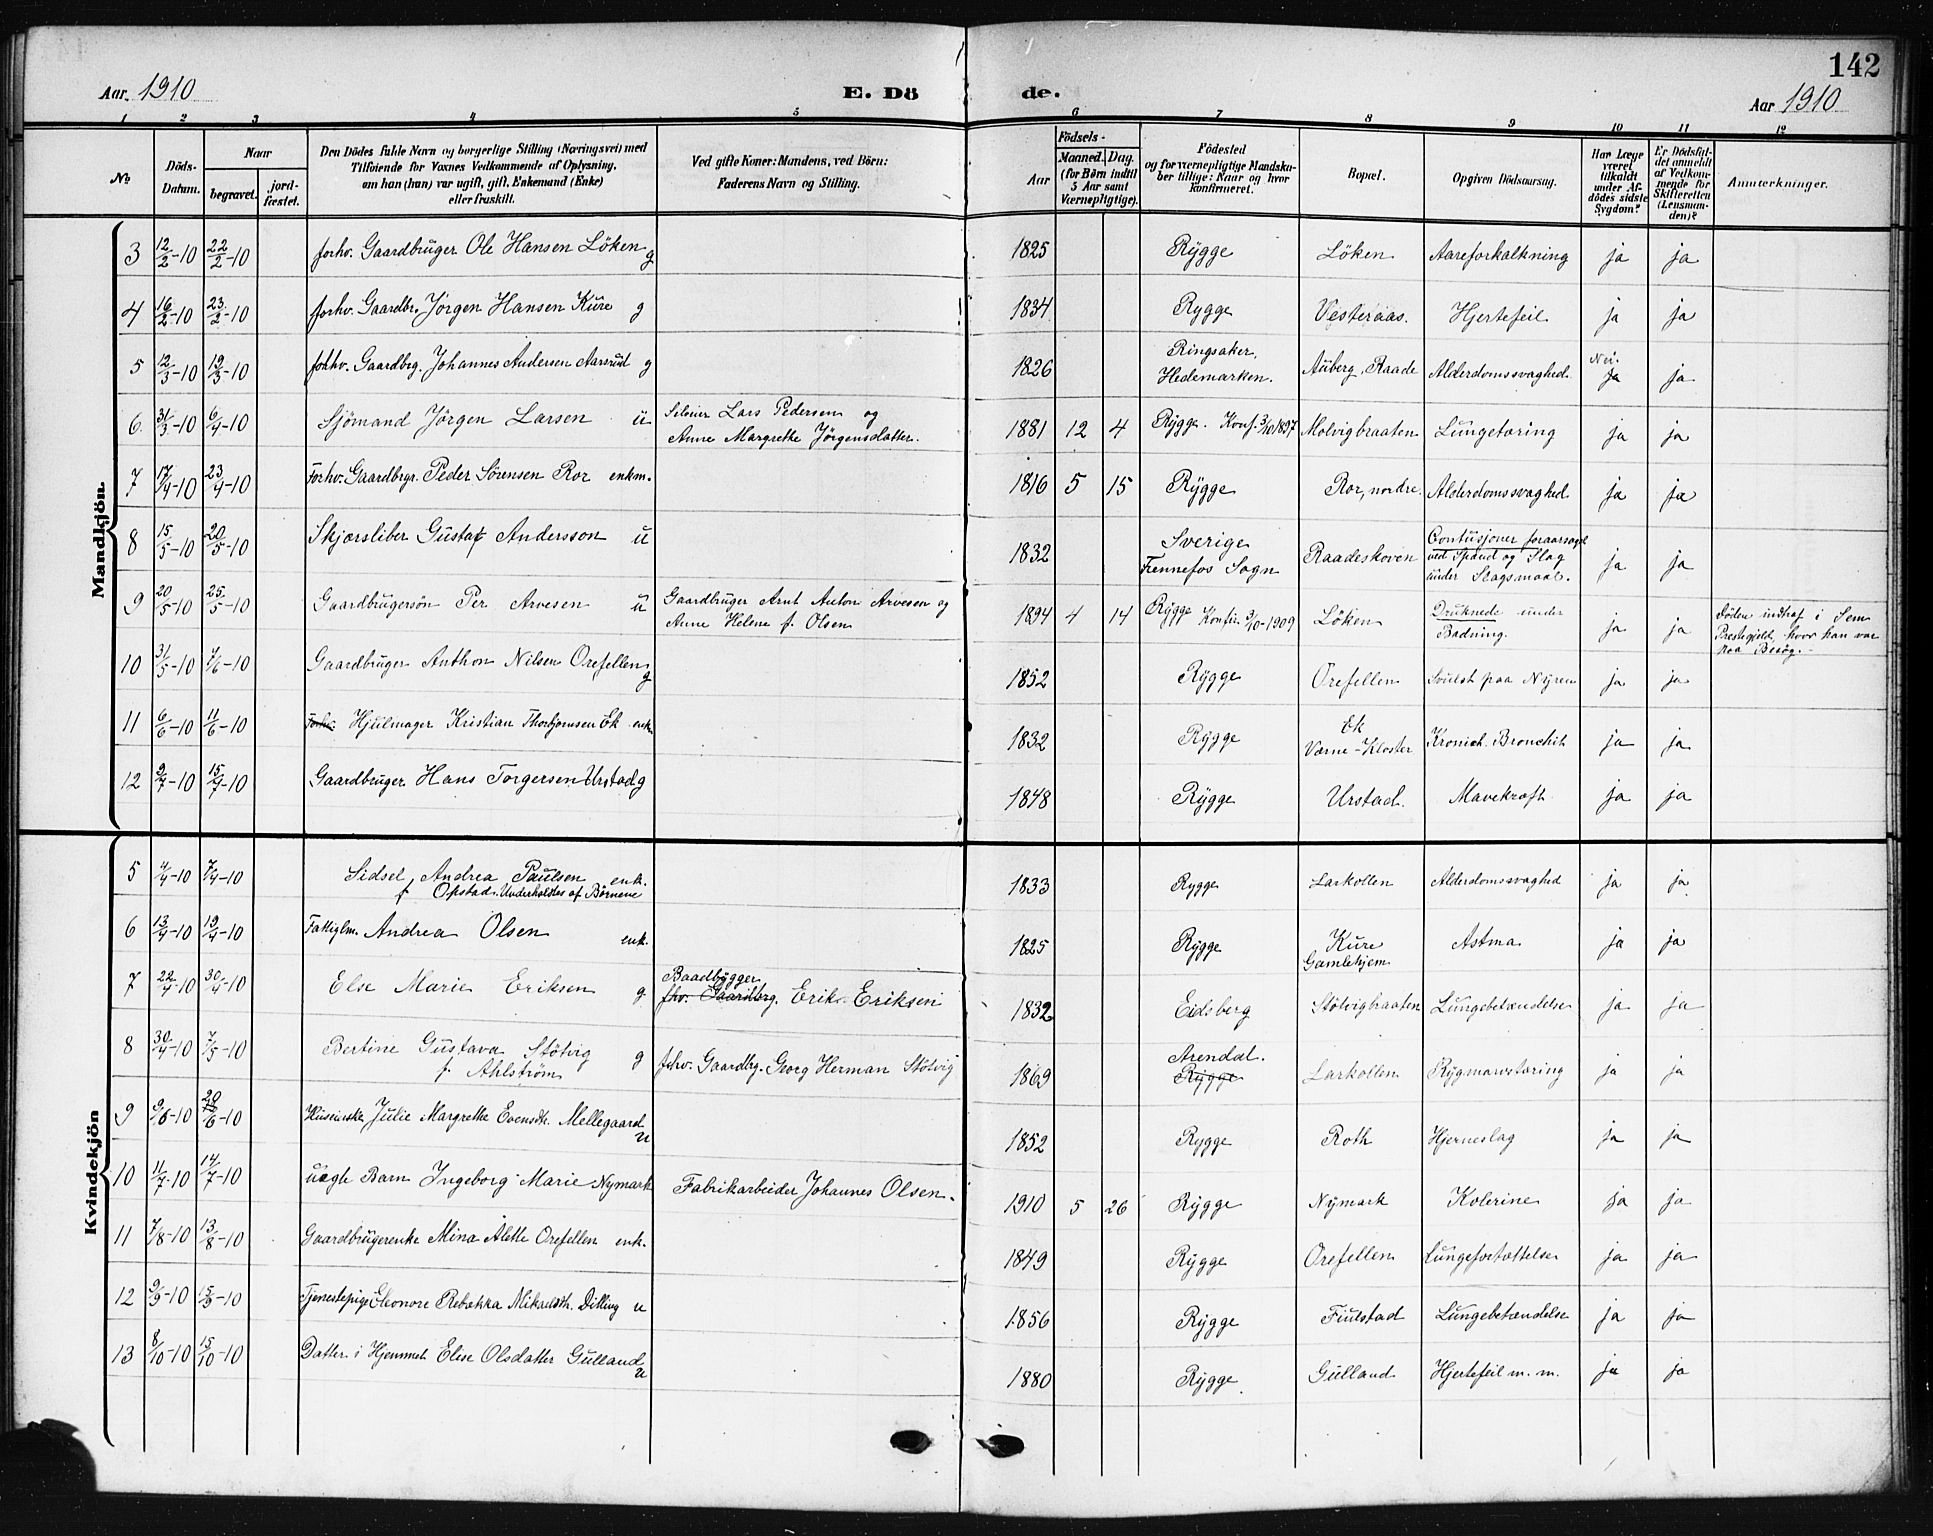 142
Aar. 1910 E. Dö de. Aar 1910
1 2 3 4 5 6 7 8 9 10 11 12
No Döds-Datum. Naar begravet. jord-fæstet. Den Dödes fulde Navn og borgerlige Stilling (Næringsvei) med Tilföiende for Voxnes Vedkommende af Oplysning, om han (hun) var ugift, gift, Enkemand (Enke) eller fraskilt. Ved gifte Koner: Mandens, ved Börn: Faderens Navn og Stilling. Födsels- Aar Maaned. Dag. (for Börn indtil 5 Aar samt Værnepligtige). Födested og for værnepligtige Mandskaber tillige: Naar og hvor konfirmeret. Bopæl. Opgiven Dödsaarsag. Har Læge været tilkaldt under Afdödes sidste Sygdom? Er Dödsfaldet anmeldt af Vedkommende for Skifteretten (Lensmanden)? Anmærkninger.
Mandkjön.
3 12/2-10 22/2-10 forhv. Gaardbruger Ole Hansen Löken g 1825 Rygge Löken Aareforkalkning ja ja
4 16/2-10 23/2-10 forhv. Gaardbr. Jörgen Hansen Kure g 1834 Rygge Vesteraas. Hjertefeil ja ja
5 12/3-10 19/3-10 forhv. Gaardbrg. Johannes Andersen Aarsrud g 1826 Ringsaker, Hedemarken. Auberg, Raade Alderdomssvaghed. Nei. ja ja
6. 31/3-10 6/4-10 Sjömand Jörgen Larsen u Selveier Lars Pedersen og
Anne Margrethe Jörgensdatter. 1881 12 4 Rygge. Konf. 3/10 1897 Molvigbraaten Lungetæring ja ja
7 17/4-10 23/4-10 Forhv. Gaardbrgr. Peder Sörensen Ror enkm. 1816 5 15 Rygge Ror, nordre. Alderdomssvaghed ja ja
8 15/5-10 20/5-10 Skjærsliber Gustaf Andersson u 1832 Sverige
Frennefos Sogn Raadeskoven Contusjoner foraarsaget
ved Spand og Slag
under Slagsmaal. ja ja
9 20/5-10 25/5-10 Gaardbrugersön Per Arvesen u Gaardbruger Arnt Anton Arvesen og
Anne Helene f. Olsen 1894 4 14 Rygge Konfir. 3/10-1909 Löken Druknede under
Badning. ja ja Döden indtraf i Sem
Prestegjeld, hvor han var
paa Besög.-
10 31/5-10 7/6-10 Gaardbruger Anthon Nilsen Orefellen g 1852 Rygge Orefellen Svulst paa Nyren ja ja
11 6/6-10 11/6-10 Forhv. Hjulmager Kristian Thorbjørnsen Ek enk. 1832 Rygge Ek
Værne-Kloster Kronich. Bronchit ja ja
12 9/7-10 15/7-10 Gaardbruger Hans Torgersen Urstad g 1848 Rygge Urstad. Mavekræft ja ja
Kvindekjön
5 4/4-10 7/4-10 Sidsel Andrea Paulsen enk.
f. Opstad. Underholdtes af Börnene 1833 Rygge Larkollen Alderdomssvaghed ja ja
6 13/4-10 19/4-10 Fattiglm. Andrea Olsen enk. 1825 Rygge Kure
Gamlehjem Astma ja ja
7 22/4-10 30/4-10 Else Marie Eriksen g. Baadbygger
fhv. Gaardbrg. Erik Eriksen 1832 Eidsberg Stölvigbraaten Lungebetændelse ja ja
8 30/4-10 7/5-10 Bertine Gustava Stölvig g
f. Ahlström forhv. Gaardbrg. Georg Herman Stölvig 1869 Arendal.
Rygge Larkollen Rygmarvstæring ja ja
9 9/6-10 20/6-10 Huseierske Julie Margrethe Evensdtr. Mellegaard u 1852 Rygge Roth Hjerneslag ja ja
10 11/7-10 14/7-10 uægte Barn Ingeborg Marie Nymark Fabrikarbeider Johannes Olsen. 1910 5 26 Rygge Nymark Kolerine ja ja
11 7/8-10 13/8-10 Gaardbrugerenke Mina Alette Orefellen enk. 1849 Rygge Orefellen Lungefortættelse ja ja
12 9/9-10 15/9-10 Tjenestepige Eleonore Rebekka Mikaelsdt. Dilling u 1856 Rygge Fiulstad Lungebetændelse ja ja
13 8/10-10 15/10-10 Datter i Hjemmet Elise Olsdatter Gulland u 1880 Rygge Gulland Hjertefeil m. m. ja ja